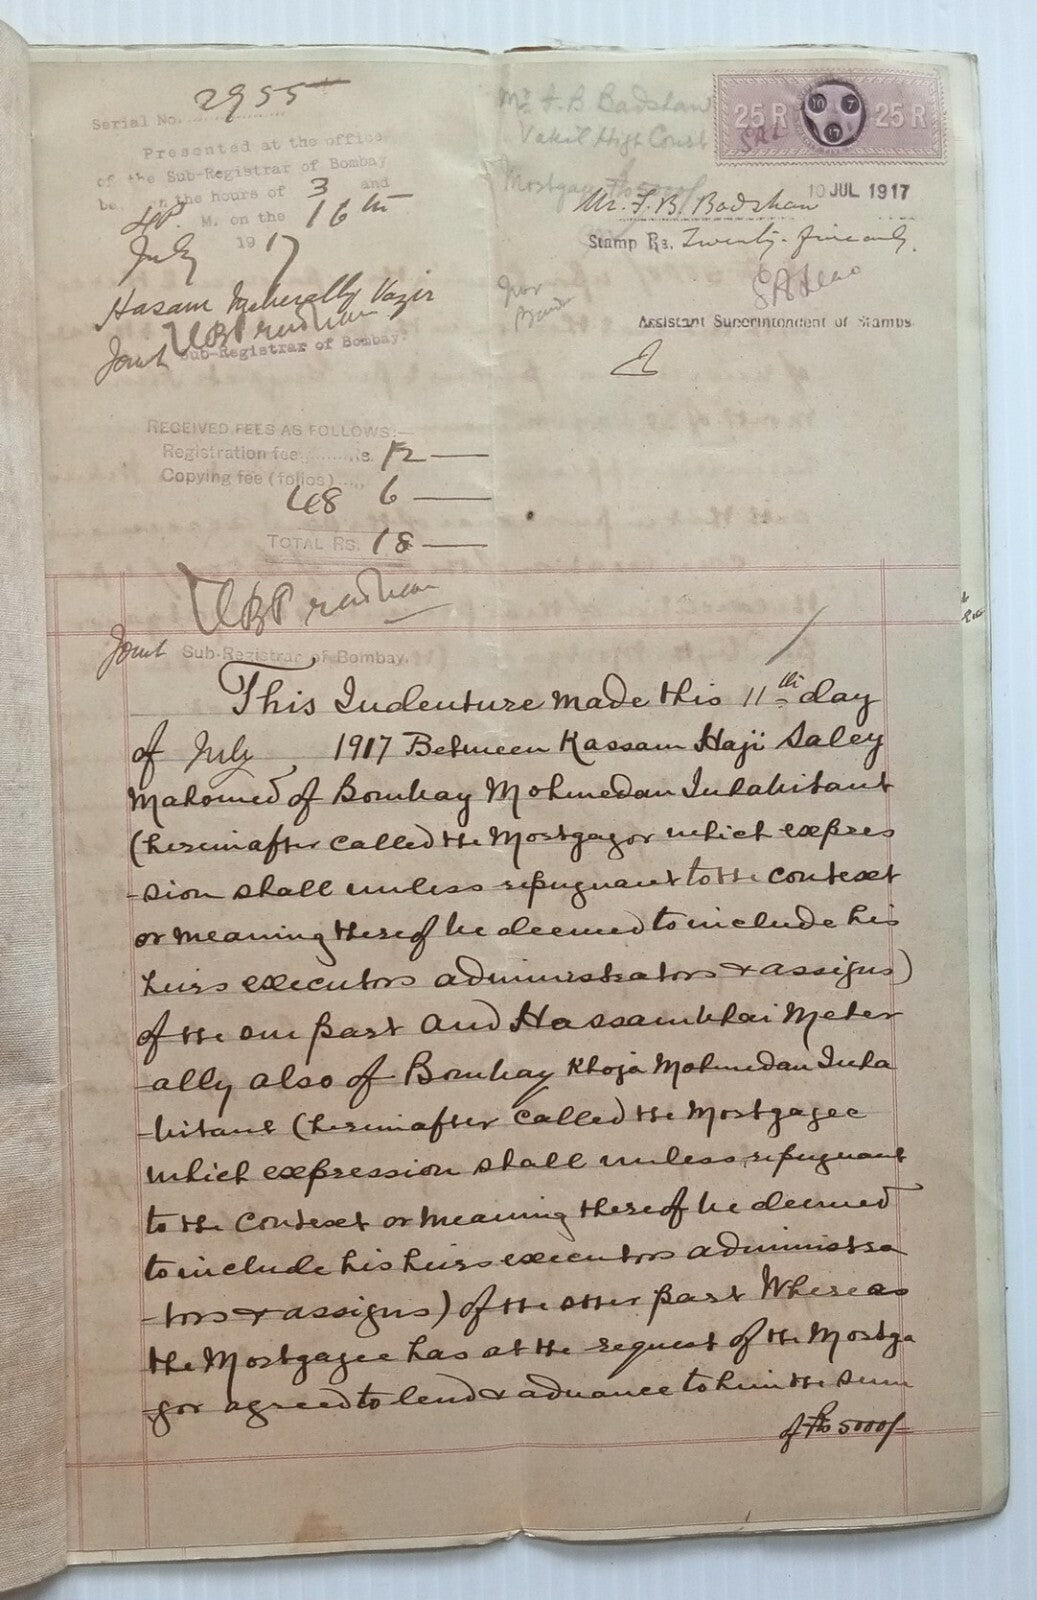 Serial No. 2955
Presented at the office
of the Sub-Registrar of Bombay
between the hours of 3 and
4 P. M. on the 16th
July 1917
Hasam Meherally Vazir
VBPradhan
Joint Sub-Registrar of Bombay.
RECEIVED FEES AS FOLLOWS:—
Registration fee 12 —
Copying fee (folios)
48 6 —
TOTAL RS. 18 —
VBPradhan
Joint Sub-Registrar of Bombay.
Mr F. B Badshaw
Vakil High Court
Mortgage Rs 5000/
25 R 25 R
10 JUL 1917
Mr. F. B. Badshaw
Stamp Rs. Twenty-five only.
Assistant Superintendent of Stamps
This Indenture made this 11th day
of July 1917 Between Kassam Haji Saley
Mahomed of Bombay Mohmedan Inhabitant
(hereinafter called the Mortgagor which expres
-sion shall unless repugnant to the context
or meaning thereof be deemed to include his
heirs executors administrators & assigns)
of the one part and Hassambhai Meher
-ally also of Bombay Khoja Mohmedan Inha
-bitant (hereinafter called the Mortgagee
which expression shall unless repugnant
to the context or meaning thereof be deemed
to include his heirs executors administra
-tors & assigns) of the other part Whereas
the Mortgagee has at the request of the Mortga
-gor agreed to lend & advance to him the sum
of Rs 5000/